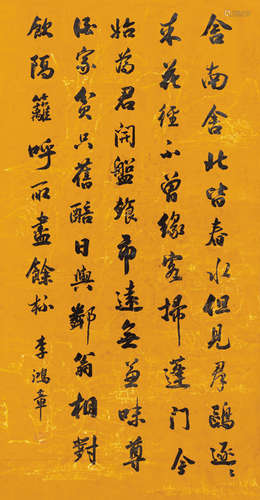 舍南舍北皆春水但見羣鷗逐〻
來花徑不曾緣客掃蓬門今
始為君開盤飧市遠無兼味尊
酒家貧只舊醅日與鄰翁相對
飲隔籬呼取盡餘杯 李鴻章